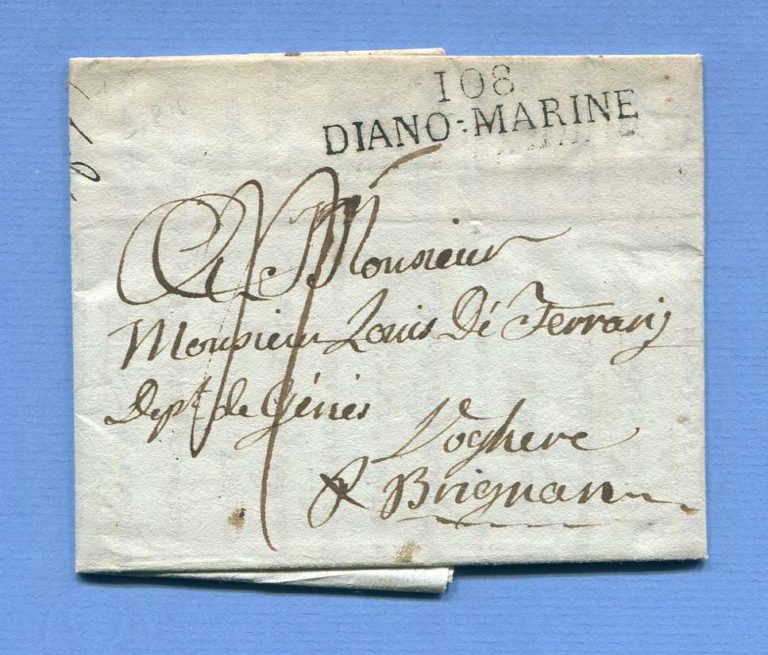 108
DIANO-MARINE
A Monsieur
Monsieur Louis Dé Ferrarij
Dept. de Génes
Voghere
Brignan